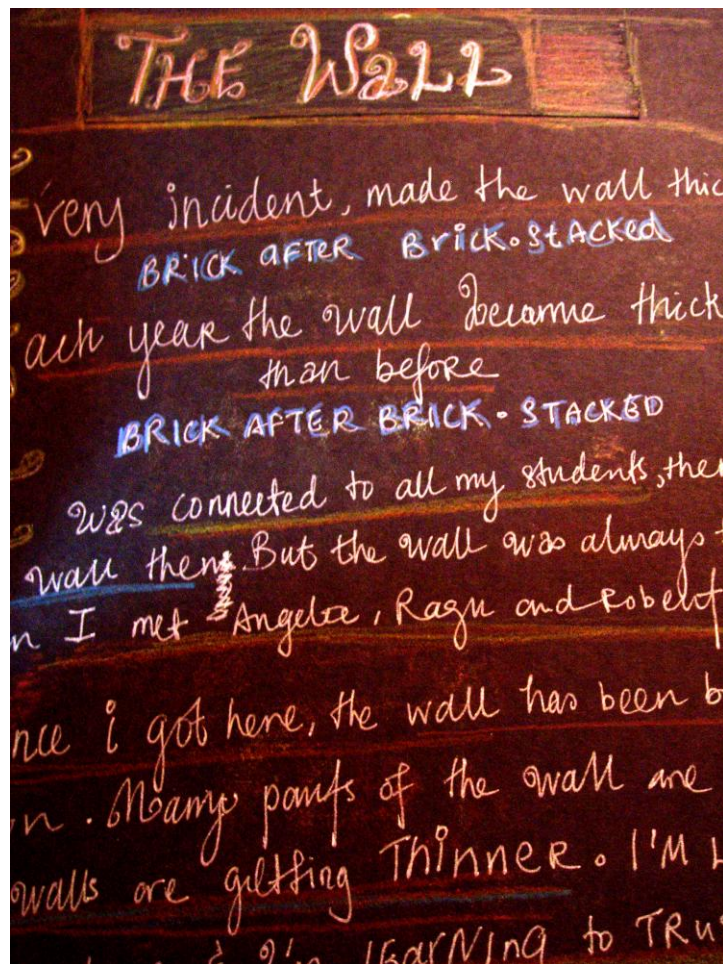 THE WALL
very incident, made the wall thic
BRICK AFTER BRICK. STACKED
ach year the wall became thick
than before
BRICK AFTER BRICK. STACKED
was connected to all my students, ther
wall then. But the wall was always
n I met Angelie, Ragu and Robert
nce i got here, the wall has been b
n. Many parts of the wall are
walls are getting THINNER. I'M L
learning to TRU